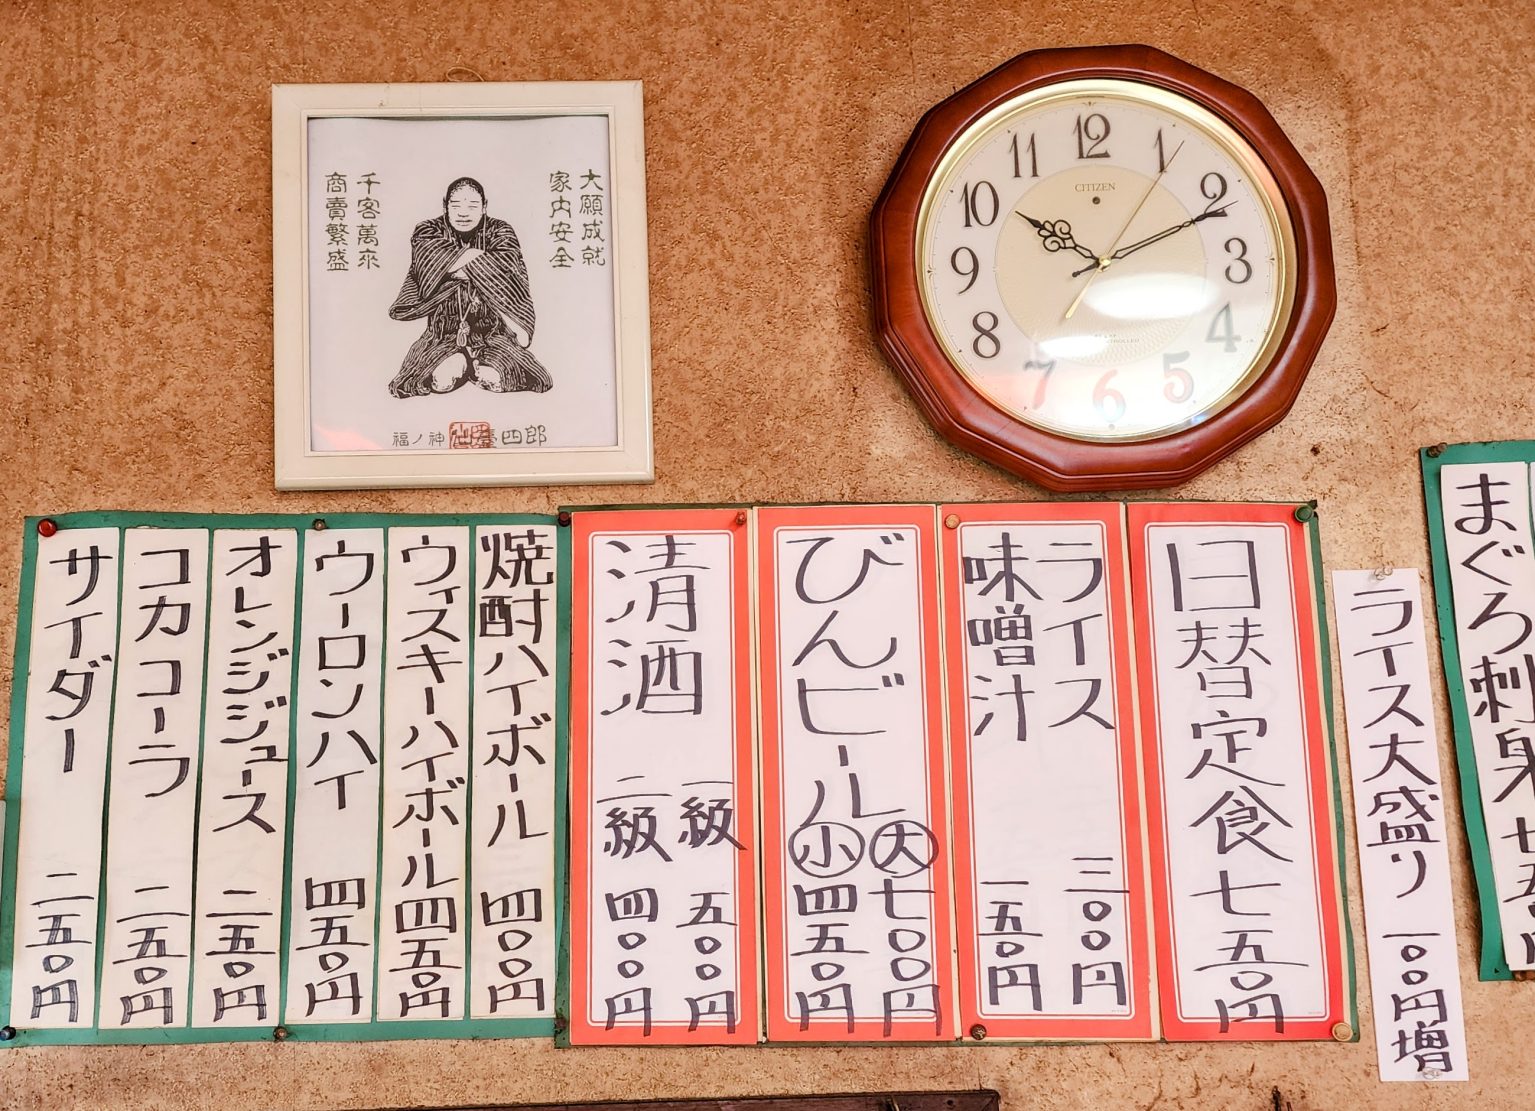 大願成就
家内安全
千客萬来
商賣繁盛
福ノ神 仙臺四郎
12
1
2
3
4
5
6
7
8
9
10
11
CITIZEN
まぐろ刺身 七五〇円
ライス大盛り 一〇〇円増
日替定食 七五〇円
ライス 三〇〇円
味噌汁 一五〇円
びんビール 大 七〇〇円
小 四五〇円
清酒 一級 五〇〇円
二級 四〇〇円
焼酎ハイボール 四〇〇円
ウィスキーハイボール 四五〇円
ウーロンハイ 四五〇円
オレンジジュース 二五〇円
コカコーラ 二五〇円
サイダー 二五〇円